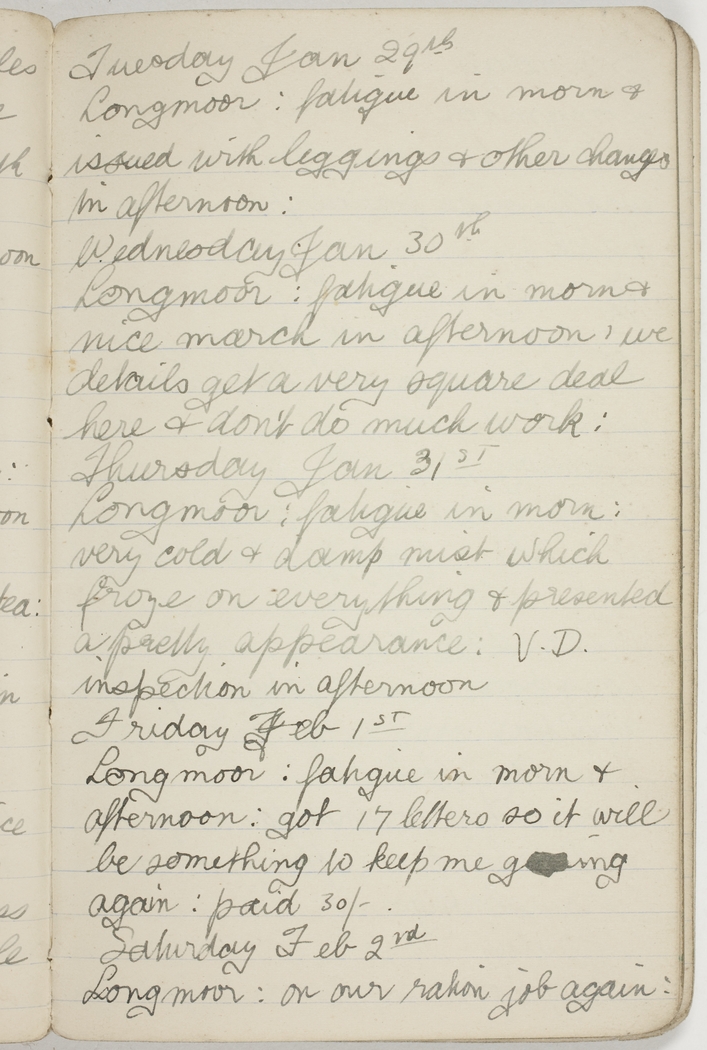 Tuesday Jan 29th
Longmoor : fatigue in morn &
issued with leggings & other changes
in afternoon :
Wednesday Jan 30th
Longmoor : fatigue in morn &
nice march in afternoon : we
details get a very square deal
here & don't do much work :
Thursday Jan 31ST
Longmoor : fatigue in morn :
very cold & damp mist which
froze on everything & presented
a pretty appearance : V.D.
inspection in afternoon
Friday Feb 1ST
Longmoor : fatigue in morn &
afternoon : got 17 letters so it will
be something to keep me going
again : paid 30/- .
Saturday Feb 2nd
Longmoor : on our ration job again :
les
oon
:
on
tea:
in
ce
ss
le